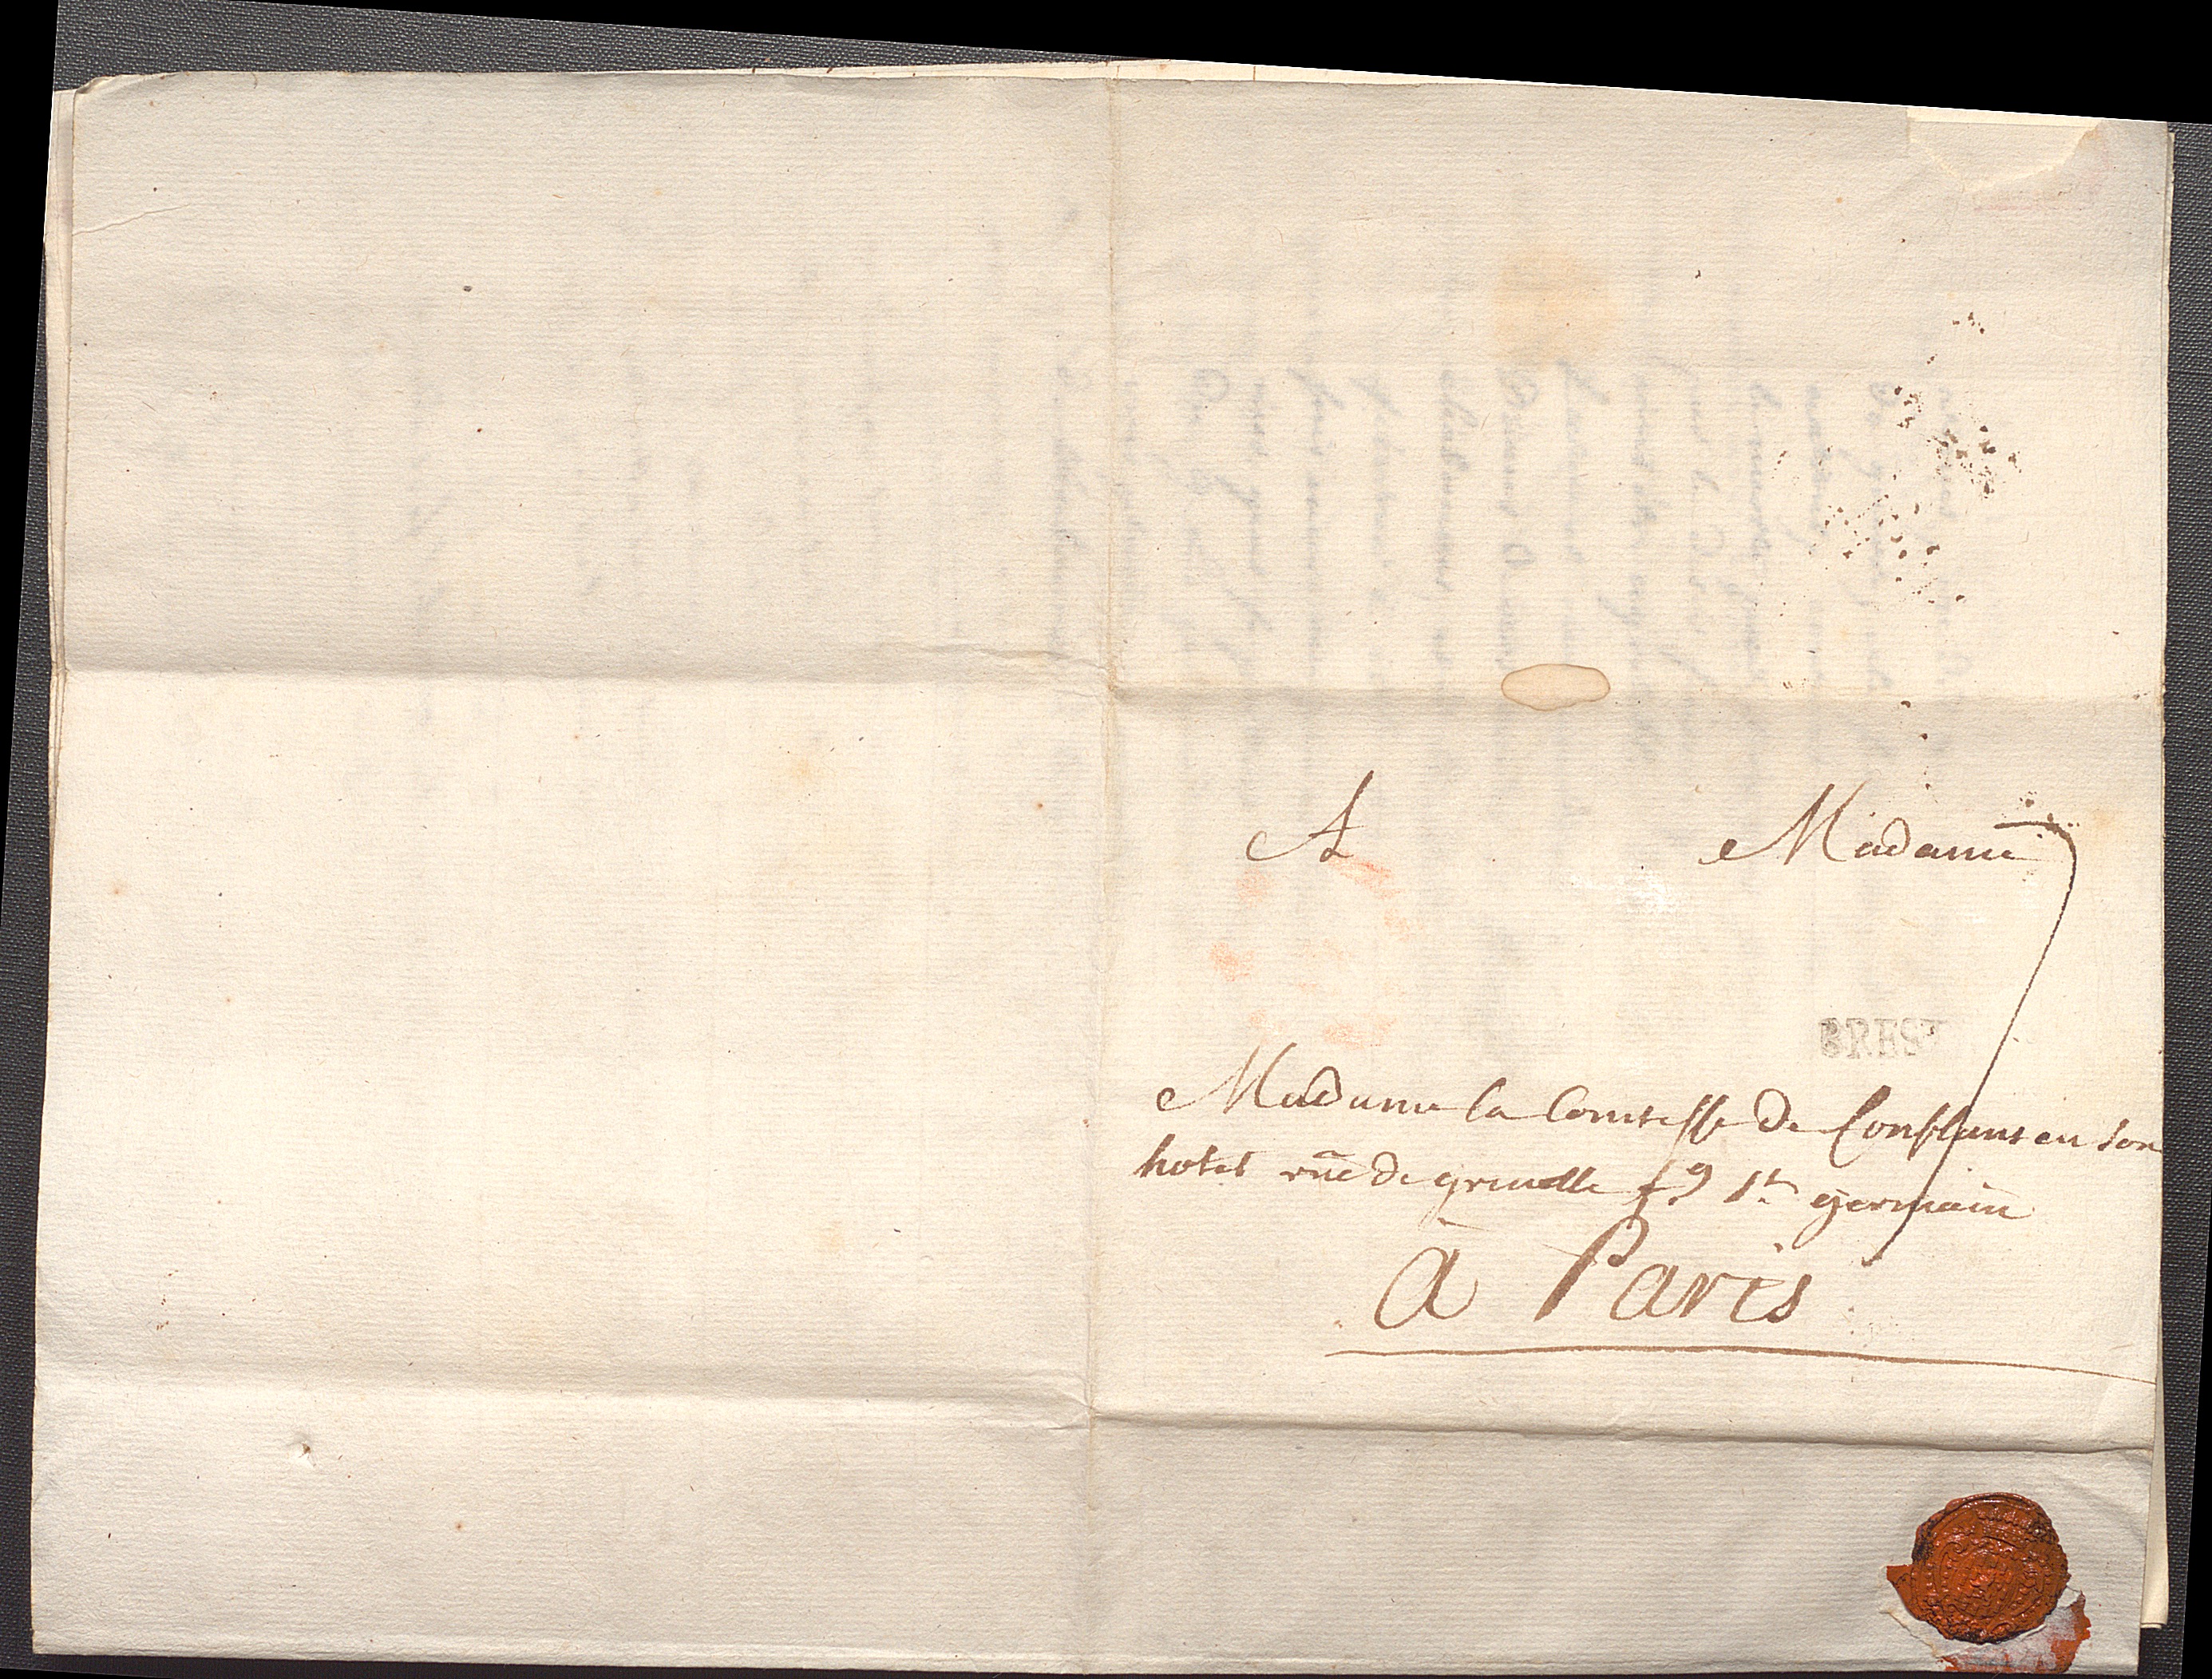 A Madame
BREST
Madame la Comtesse de Conflans en son
hotel rüe de grenelle f g St germain
à Paris